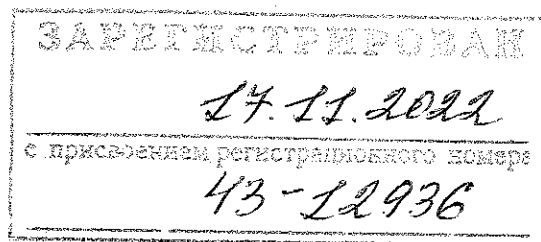 ЗАРЕГИСТРИРОВАН
17.11.2022
с присвоением регистрационного номера
43-12936